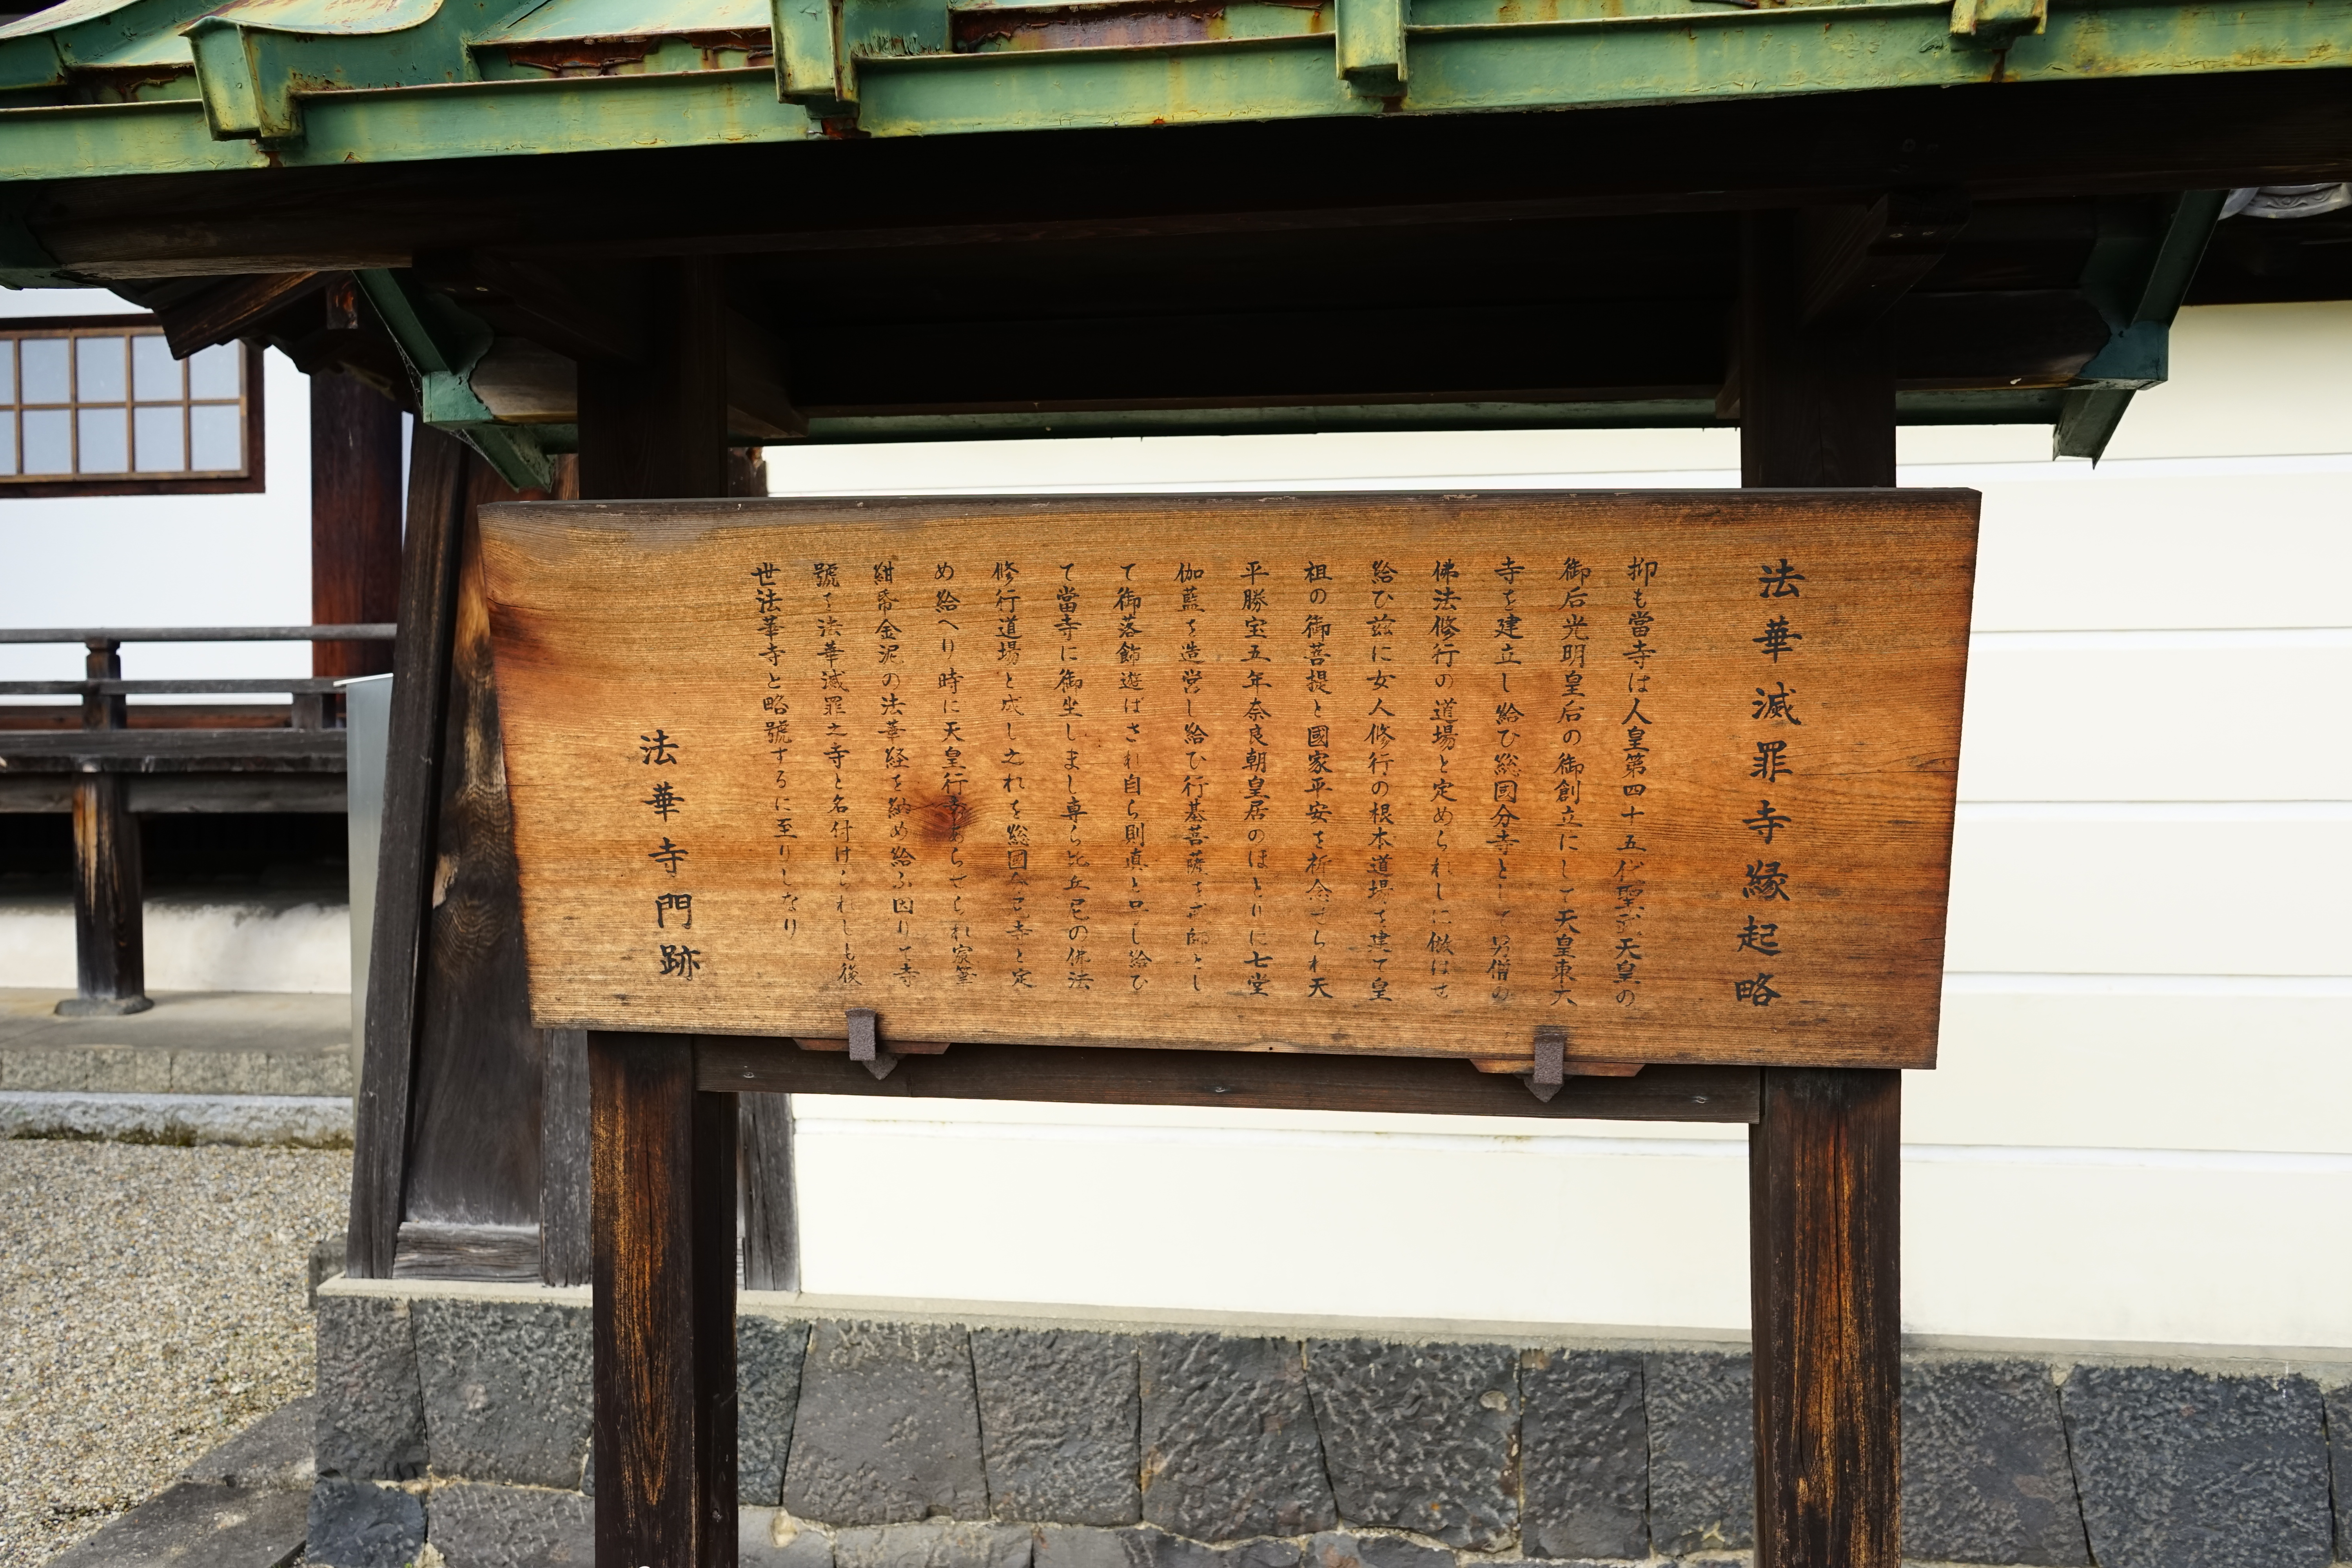 法華滅罪寺縁起略
抑も當寺は人皇第四十五代聖武天皇の
御后光明皇后の御創立にして天皇東大
寺を建立し給ひ総國分寺として男僧の
佛法修行の道場と定められしに倣はせ
給ひ茲に女人修行の根本道場を建て皇
祖の御菩提と國家平安を祈念せられ天
平勝宝五年奈良朝皇居のほとりに七堂
伽藍を造営し給ひ行基菩薩を戒師とし
て御落飾遊ばされ自ら則真と号し給ひ
て當寺に御坐しまし専ら比丘尼の佛法
修行道場と成し之れを総國分尼寺と定
め給へり時に天皇行幸あらせられ宸筆
紺帋金泥の法華経を納め給ふ因りて寺
號を法華滅罪之寺と名付けられしも後
世法華寺と略號するに至りしなり
法華寺門跡